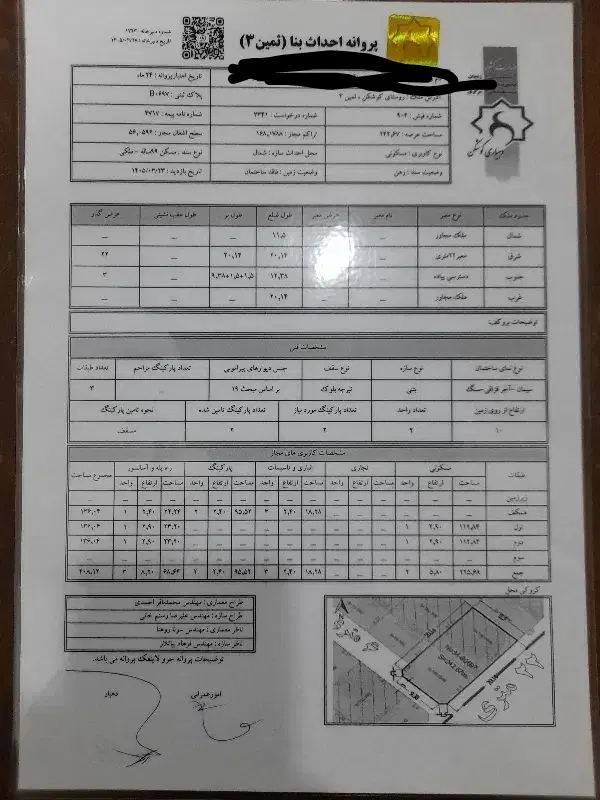 شماره دبیرخانه : ۱۷۹۳
تاریخ دبیرخانه :
پروانه احداث بنا (ثمین ۳)
تاریخ اعتبار پروانه : ۲۴ ماه
آدرس ملک : روستای کوشکن ، ثمین ۳
پلاک ثبتی : B۰۶۹۷
شماره فرش : ۹۰۴
شماره درخواست : ۳۳۴۱
شماره نامه بیمه : ۴۷۱۷
مساحت عرصه : ۲۴۲,۶۷
تراکم مجاز : ۱۶۸,۱۷۸۸
سطح اشغال مجاز : ۵۶,۰۵۹۶
نوع کاربری : مسکونی
محل احداث سازه : شمال
نوع سند : مسکن ۹۹ساله - ملکی
وضعیت سند : رهن
وضعیت زمین : فاقد ساختمان
تاریخ بازدید : ۱۴۰۵/۰۲/۲۳
دهیاری کوشکن
حدود ملک نوع معبر نام معبر عرض معبر طول ضلع طول بر طول عقب نشینی عرض گذر
شمال ملک مجاور – – ۱۱,۵ – – –
شرق معبر ۲۲متری – – ۲۰,۱۴ ۲۰,۱۴ – ۲۲
جنوب دسترسی پیاده – – ۱۲,۳۸ ۹,۳۸+۱,۵+۱,۵ – ۳
غرب ملک مجاور – – ۲۰,۱۴ – – –
توضیحات بروکفت:
مشخصات فنی
نوع نمای ساختمان نوع سازه نوع سقف جنس دیوارهای پیرامونی تعداد پارکینگ مزاحم تعداد طبقات
سیمان -آجر قزاقی-سنگ بتنی تیرچه بلوک بر اساس مبحث ۱۹ – ۳
ارتفاع از روی زمین تعداد واحد تعداد پارکینگ مورد نیاز تعداد پارکینگ تامین شده نحوه تامین پارکینگ
۱۰ ۲ ۲ ۲ مسقف
مشخصات کاربری های مجاز
طبقات مسکونی تجاری انباری و تاسیسات پارکینگ راه پله و آسانسور مجموع مساحت
مساحت ارتفاع واحد مساحت ارتفاع واحد مساحت ارتفاع واحد مساحت ارتفاع واحد مساحت ارتفاع واحد
زیرزمین – – – – – – – – – – – – – – – –
همکف – – – – – – ۱۸,۲۸ ۲,۴۰ ۳ ۹۵,۵۲ ۲,۴۰ ۲ ۲۲,۲۴ ۲,۴۰ ۱ ۱۳۶,۰۴
اول ۱۱۲,۸۴ ۲,۹۰ ۱ – – – – – – – – – ۲۳,۲۰ ۲,۹۰ ۱ ۱۳۶,۰۴
دوم ۱۱۲,۸۴ ۲,۹۰ ۱ – – – – – – – – – ۲۳,۲۰ ۲,۹۰ ۱ ۱۳۶,۰۴
سوم – – – – – – – – – – – – – – – –
جمع ۲۲۵,۶۸ ۵,۸۰ ۲ – – – ۱۸,۲۸ ۲,۴۰ ۳ ۹۵,۵۲ ۲,۴۰ ۲ ۶۸,۶۴ ۸,۲۰ ۳ ۴۰۸,۱۲
کروکی محل
طراح معماری : مهندس محمدباقر احمدی
طراح سازه : مهندس علیرضا رستم خانی
ناظر معماری : مهندس سونا روهنا
ناظر سازه : مهندس فرهاد بیاتلار
توضیحات پروانه جزو لاینفک پروانه می باشد.
۲۲ متری
امور عمرانی
دهیار